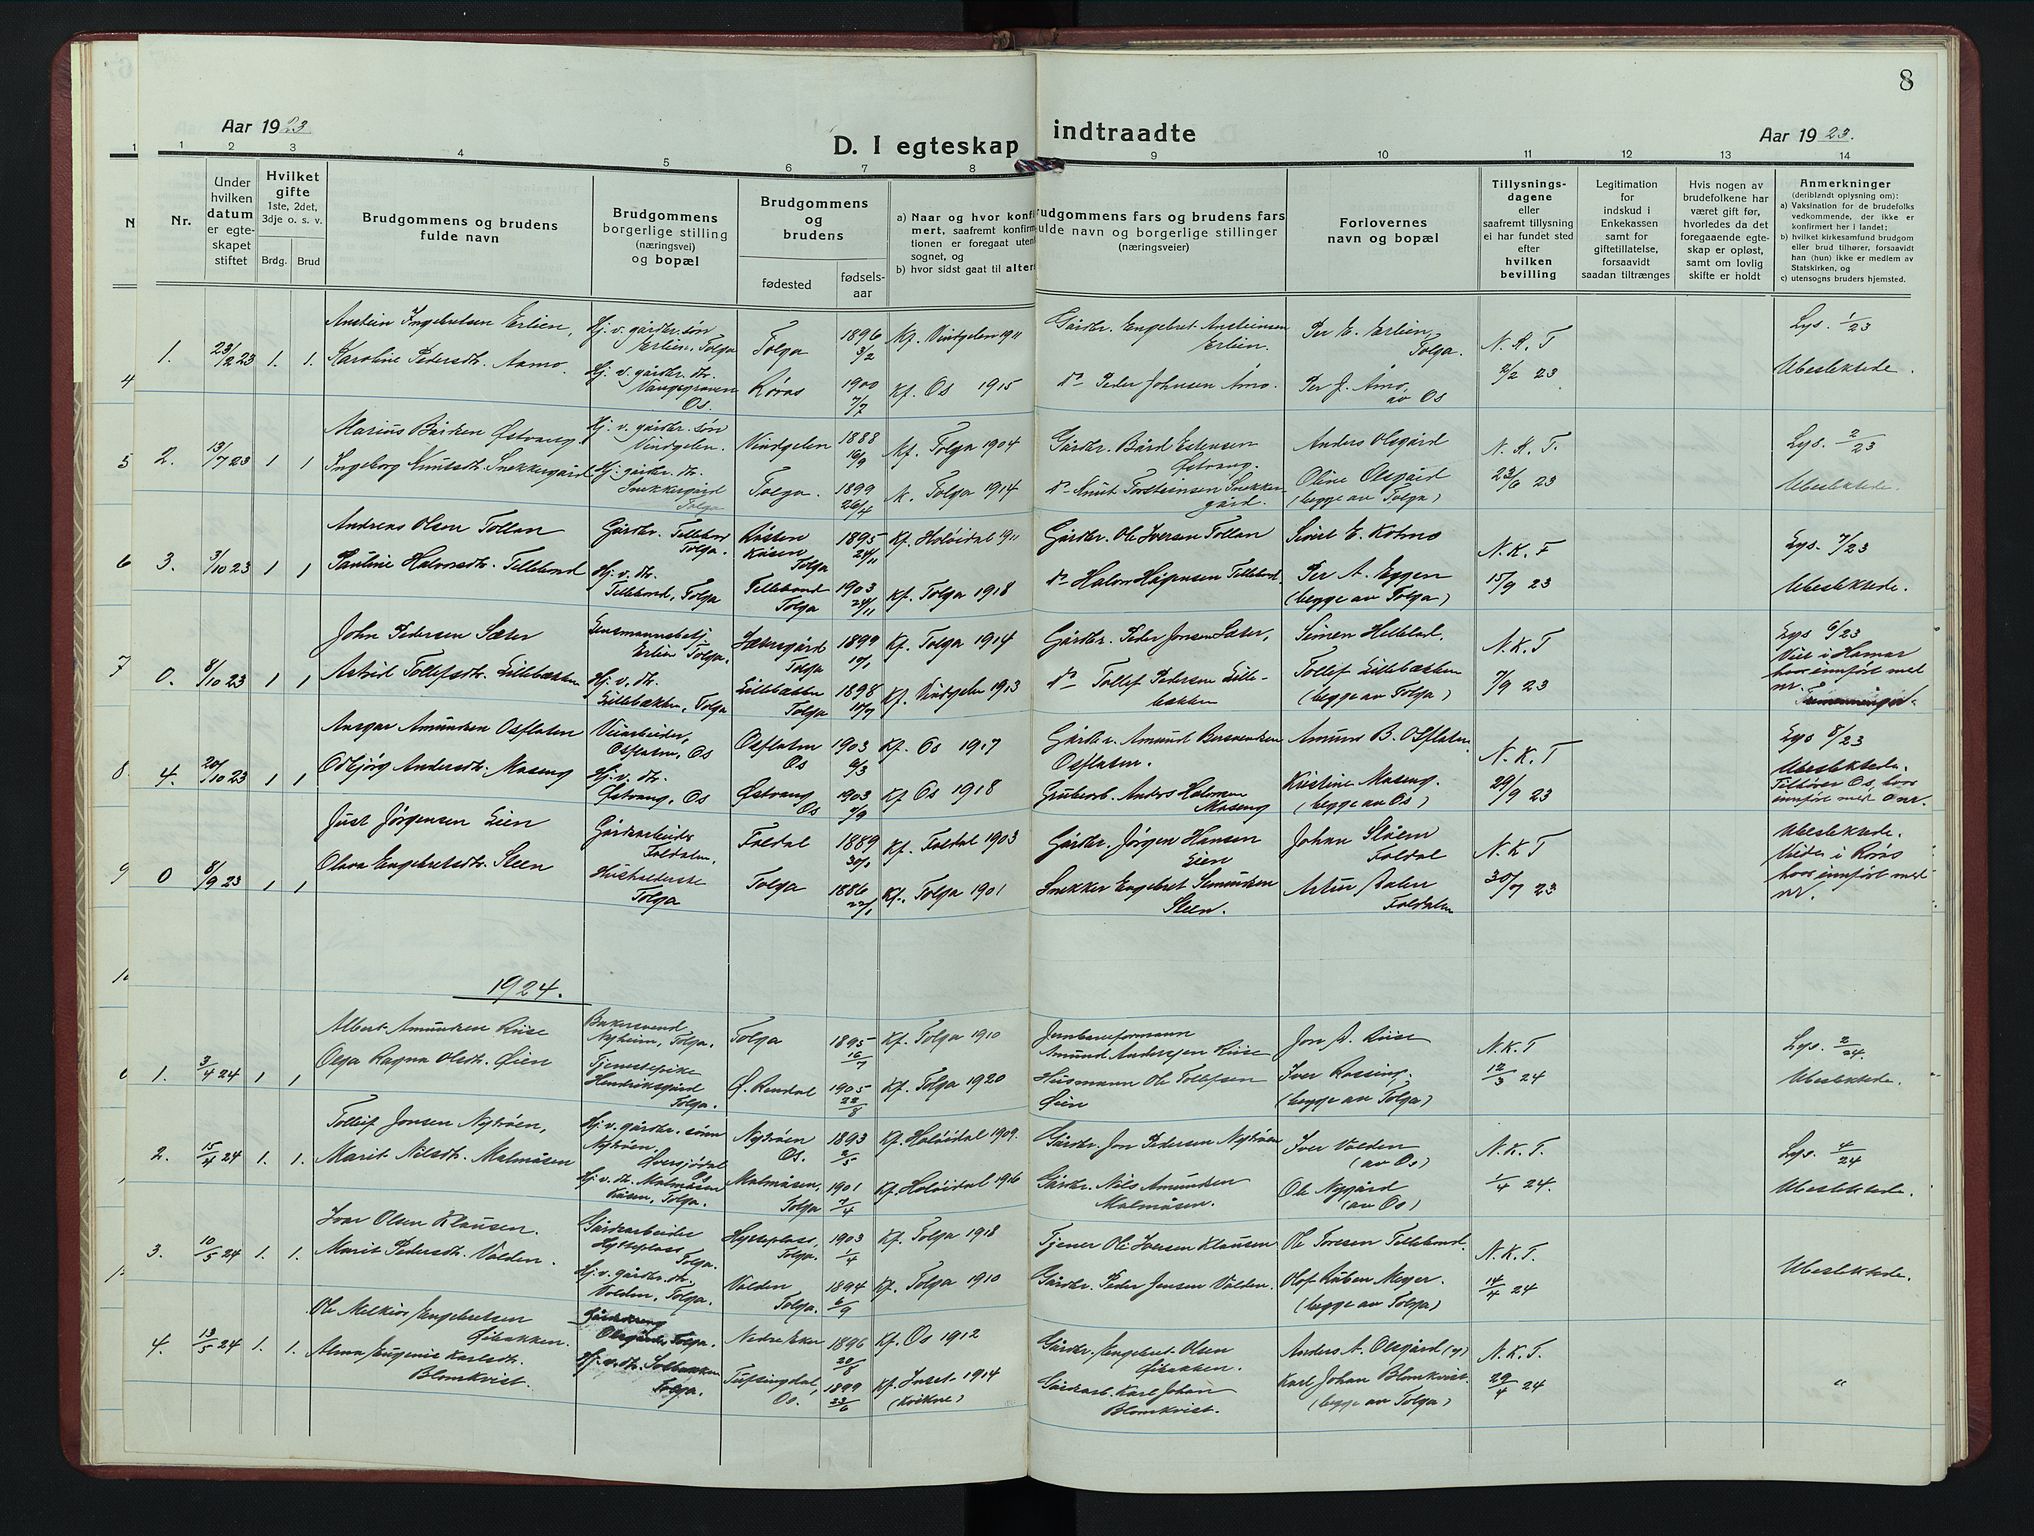 8
Aar 1923
D. I egteskap indtraadte
Aar 1923.
1 2 3 4 5 6 7 8 9 10 11 12 13 14
Nr.
Under hvilken datum er egteskapet stiftet
Hvilket gifte
1ste, 2det, 3dje o. s. v.
Brdg. Brud
Brudgommens og brudens fulde navn
Brudgommens borgerlige stilling (næringsvei) og bopæl
Brudgommens og brudens
fødested
fødsels-aar
a) Naar og hvor konfi
mert, saafremt konfirm
tionen er foregaat uten
sognet, og
b) hvor sidst gaat til alters
rudgommens fars og brudens fars
ulde navn og borgerlige stillinger
(næringsveier)
Forlovernes navn og bopæl
Tillysnings-dagene
eller
saafremt tillysning
ei har fundet sted
efter
hvilken
bevilling
Legitimation
for
indskud i
Enkekassen
samt for
giftetillatelse,
forsaavidt
saadan tiltrænges
Hvis nogen av
brudefolkene har
været gift før,
hvorledes da det
foregaaende egte-
skap er opløst,
samt om lovlig
skifte er holdt
Anmerkninger
(deriblandt oplysning om):
a) Vaksination for de brudefolks
vedkommende, der ikke er
konfirmert her i landet;
b) hvilket kirkesamfund brudgom
eller brud tilhører, forsaavidt
han (hun) ikke er medlem av
Statskirken, og
c) utensogns bruders hjemsted.
1. 23/2 23 1. 1.
Anstein Ingebretsen Erlien,
Karoline Pedersdtr. Aamo.
Hj. v. gårdbr. søn Erlien, Tolga
Hj. v. gårdbr. dtr. Vangsgraven Os.
Tolga 1896 3/2
Røros 1900 7/7
Kf. Vindgelen 1911
Kf. Os 1915
Gårdbr. Engebret Ansteinsen Erlien.
do Peder Johnsen Åmo.
Per E. Erlien, Tolga.
Per J. Åmo, av Os
N. K. T
2/2 23
Lys. 1/23
Ubeslektede.
2. 13/7 23 1 1
Marius Bårdsen Østvang.
Ingeborg Knutsdtr. Snekkergård
Hj. v. gårdbr. søn Vindgelen.
Hj. gårdbr. dtr. Snekkergård Tolga
Vindgelen 1888 16/9
Tolga. 1899 26/4
Kf. Tolga 1904
K. Tolga 1914
Gårdbr. Bård Estensen Østvang.
do Knut Torsteinsen Snekkergård.
Anders Olsgård
Oline Olsgård
(begge av Tolga)
N. K. T.
23/6 23
Lys. 2/23
Ubeslektede.
3. 3/10 23 1 1
Andreas Olsen Tollan
Pauline Halvorsdtr. Tellebond
Gårdbr. Tellebond Tolga.
Hj. v. dtr. Tellebond, Tolga
Tolga 1895 24/11
Tellebond Tolga 1903 24/11
Kf. Holøidal 1911
Kf. Tolga 1918
Gårdbr. Ole Iversen Tollan
do Halvor Håkensen Tellebond.
Sivert E. Kohmo
Per A. Eggen
(begge av Tolga)
N. K. T
15/9 23
Lys. 7/23
Ubeslektede.
0. 8/10 23 1 1
John Pedersen Sæter
Astrid Tollefsdtr. Lillebækken
Lensmannsbetj. Erlien Tolga.
Hj. v. dtr. Lillebækken, Tolga
Tolga 1899
Lillebækken Tolga 1898
Kf. Tolga 1914
Kf. Vindgelen 1913
Gårdbr. Peder Jonsen Sæter,
do Tollef Pedersen Lillebækken
Simen Helblad.
Tollef Lillebækken
(begge av Tolga)
N. K. T
7/9 23
Lys 6/23
Viet i Hamar
hvor innført med
nr.
4. 20/10 23 1 1
Ansgar Amundsen Osflaten
Odbjørg Andersdtr. Moseng
Veiarbeider, Osflaten, Os
Hj. v. dtr. Østvang, Os
Osflaten Os 1903 6/3
Østvang Os 1903
Kf. Os 1917
Kf Os 1918
Gårdbr. Amund Bersvendsen Osflaten.
Grubearb. Anders Halvorsen Moseng
Amund B. Osflaten.
Kristine Moseng.
(begge av Os)
N. K. T
29/9 23
Lys 8/23
Ubeslektede.
Tilhører Os, hvor
innført med nr.
0 8/9 23 1 1
Just Jørgensen Lien
Olava Engebretsdtr. Steen
Gårdsarbeider Foldalen.
Husholderske Tolga
Foldal 1889 30/1
Tolga 1886 22/1
Kf. Foldal 1903
Kf. Tolga 1901
Gårdbr. Jørgen Hansen Lien
Snekker Engebret Simundsen Steen.
Johan Sløem Foldal
Artur Dalen Foldalen
N. K. T
30/7 23
Ubeslektede.
Viedes i Røros
hvor innført med
nr.
1924.
1. 3/4 24 1 1
Albert Amundsen Riise
Olga Ragna Olsdtr. Øien
Bakersvend Nyheim, Tolga.
Tjenestepike Hendriksgård Tolga.
Tolga 1895 16/7
Ø. Rendal 1905 22/8
Kf. Tolga 1910
Kf. Tolga 1920
Jernbaneformann Amund Andersen Riise
Husmann Ole Tollefsen Øien
Jon A. Riise
Iver Rossing.
(begge av Tolga)
N. K. T
12/3 24
Lys. 2/24
Ubeslektede.
2. 15/4 24 1. 1.
Tollef Jonsen Nytrøen,
Marit Nilsdtr. Malmåsen
Hj. v. gårdbr. sønn Nytrøen, Hversjødal Os
Hj. v. dtr. Malmåsen Kåsen, Tolga.
Nytrøen Os. 1893 2/5
Malmåsen, Tolga 1901 7/4
Kf. Holøidal 1909.
Kf. Holøidal 1916
Gårdbr. Jon Pedersen Nytrøen
Gårdbr. Nils Amundsen Malmåsen.
Iver Volden (av Os)
Ole Nygård (av Os)
N. K. T.
1/4 24.
Lys. 4/24
Ubeslektede.
3. 10/5 24 1. 1.
Ivar Olsen Klausen.
Marit Pedersdtr. Volden.
Gårdsarbeider Hytteplass Tolga.
Hj. v. gårdbr. dtr. Volden, Tolga.
Hytteplass Tolga. 1903 1/4
Volden Tolga. 1894 6/9
Kf. Tolga 1918
Kf. Tolga 1910
Tjener Ole Iversen Klausen
Gårdbr. Peder Jensen Volden.
Ole Toresen Tellebond.
Olof Ruben Meyer.
(begge av Tolga)
N. K. T.
14/4 24
Ubeslektede.
4. 13/5 24 1. 1.
Ole Melkior Engebretsen Øibakken.
Alma Eugenie Karlsdtr. Blomkvist.
Gårdsdreng Olsgården Tolga.
Hj. v. dtr. Solbakken Tolga.
Nedre Eker 1896 20/8
Tufsingdal, Os. 1899 23/6
Kf. Os 1912
Kf. Inset 1914 (Kvikne)
Gårdbr. Engebret Olsen Øibakken.
Gårdsarb. Karl Johan Blomkvist.
Anders A. Olsgård
Karl Johan Blomkvist.
(begge av Tolga)
N. K. T.
29/4 24
"